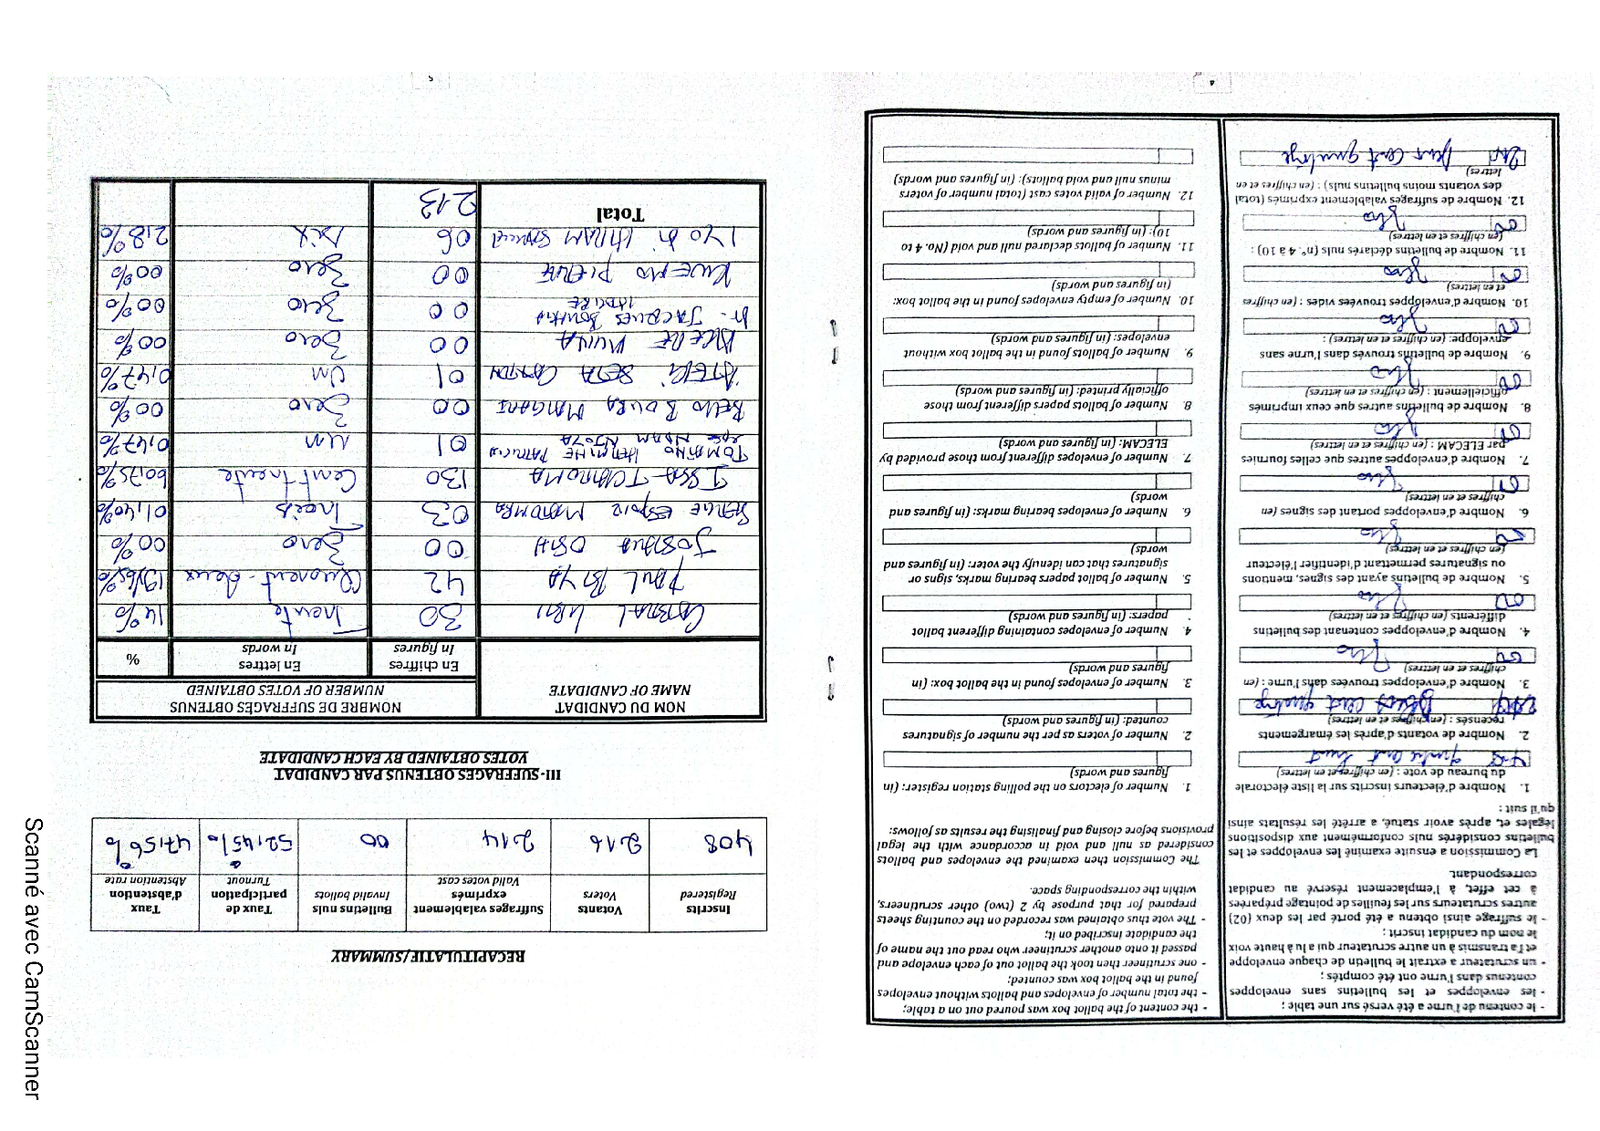 - le contenu de l'urne a été versé sur une table ;
- les enveloppes et les bulletins sans enveloppes
contenus dans l'urne ont été comptés ;
- un scrutateur a extrait le bulletin de chaque enveloppe
et l'a transmis à un autre scrutateur qui a lu à haute voix
le nom du candidat inscrit ;
- le suffrage ainsi obtenu a été porté par les deux (02)
autres scrutateurs sur les feuilles de pointage préparées
à cet effet, à l'emplacement réservé au candidat
correspondant.
La Commission a ensuite examiné les enveloppes et les
bulletins considérés nuls conformément aux dispositions
légales et, après avoir statué, a arrêté les résultats ainsi
qu'il suit :
1. Nombre d'électeurs inscrits sur la liste électorale
du bureau de vote : (en chiffres et en lettres)
408 quatre cent huit
2. Nombre de votants d'après les émargements
recensés : (en chiffres et en lettres)
214 Deux cent quatorze
3. Nombre d'enveloppes trouvées dans l'urne : (en
chiffres et en lettres)
00 Zéro
4. Nombre d'enveloppes contenant des bulletins
différents (en chiffres et en lettres)
00 Zéro
5. Nombre de bulletins ayant des signes, mentions
ou signatures permettant d'identifier l'électeur
(en chiffres et en lettres)
00 Zéro
6. Nombre d'enveloppes portant des signes (en
chiffres et en lettres)
00 Zéro
7. Nombre d'enveloppes autres que celles fournies
par ELECAM : (en chiffres et en lettres)
00 Zéro
8. Nombre de bulletins autres que ceux imprimés
officiellement : (en chiffres et en lettres)
00 Zéro
9. Nombre de bulletins trouvés dans l'urne sans
enveloppe: (en chiffres et en lettres) :
00 Zéro
10. Nombre d'enveloppes trouvées vides : (en chiffres
et en lettres)
00 Zéro
11. Nombre de bulletins déclarés nuls (n°. 4 à 10) :
(en chiffres et en lettres)
00 Zéro
12. Nombre de suffrages valablement exprimés (total
des votants moins bulletins nuls) : (en chiffres et en
lettres)
214 Deux cent quatorze
- the content of the ballot box was poured out on a table;
- the total number of envelopes and ballots without envelopes
found in the ballot box was counted;
- one scrutineer then took the ballot out of each envelope and
passed it onto another scrutineer who read out the name of
the candidate inscribed on it;
- The vote thus obtained was recorded on the counting sheets
prepared for that purpose by 2 (two) other scrutineers,
within the corresponding space.
The Commission then examined the envelopes and ballots
considered as null and void in accordance with the legal
provisions before closing and finalising the results as follows:
1. Number of electors on the polling station register: (in
figures and words)
2. Number of voters as per the number of signatures
counted: (in figures and words)
3. Number of envelopes found in the ballot box: (in
figures and words)
4. Number of envelopes containing different ballot
papers: (in figures and words)
5. Number of ballot papers bearing marks, signs or
signatures that can identify the voter: (in figures and
words
6. Number of envelopes bearing marks: (in figures and
words)
7. Number of envelopes different from those provided by
ELECAM: (in figures and words)
8. Number of ballots papers different from those
officially printed: (in figures and words)
9. Number of ballots found in the ballot box without
envelopes: (in figures and words)
10. Number of empty envelopes found in the ballot box:
(in figures and words)
11. Number of ballots declared null and void (No. 4 to
10): (in figures and words)
12. Number of valid votes cast (total number of voters
minus null and void ballots): (in figures and words)
4
RECAPITULATIF/SUMMARY
Inscrits Registered
Votants Voters
Suffrages valablement exprimés Valid votes cast
Bulletins nuls Invalid ballots
Taux de participation Turnout
Taux d'abstention Abstention rate
408 214 214 00 52,45% 47,56%
III- SUFFRAGES OBTENUS PAR CANDIDAT
VOTES OBTAINED BY EACH CANDIDATE
NOM DU CANDIDAT
NAME OF CANDIDATE
NOMBRE DE SUFFRAGES OBTENUS
NUMBER OF VOTES OBTAINED
En chiffres In figures
En lettres In words
%
CABRAL LIBII 30 Trente 14%
PAUL BIYA 42 Quarent-deux 19,65%
JOSHUA OSIH 00 Zero 00%
SERGE ESPOIR MATOMBA 03 Trois 01,40%
ISSA TCHIROMA 130 Cent trente 60,75%
TOMAINO HERMINE PATRICIA
epse NDAM NJOYA 01 un 0,47%
BELLO BOUBA MAIGARI 00 Zero 00%
ATEKI SETA CAXTON 01 Un 0,47%
AKERE MUNA 00 Zero 00%
Dr. JACQUES BOUHGA 00 Zero 00%
KWEMO PIERRE 00 Zero 00%
IYODI HIRAM SAMUEL 06 Six 2,8%
Total 213
5
Scanné avec CamScanner